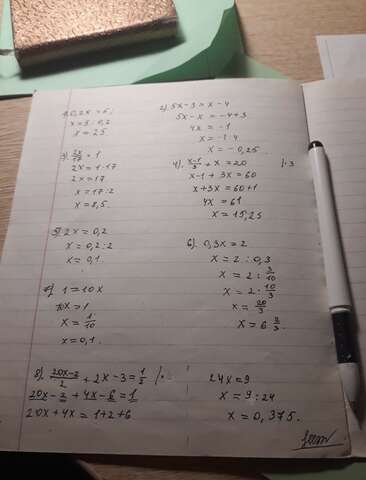 1) 0,2x = 5;
x = 5 : 0,2
x = 25
2) 5x - 3 = x - 4
5x - x = -4 + 3
4x = -1
x = -1 : 4
x = -0,25.
3) 2x/17 = 1
2x = 1 · 17
2x = 17
x = 17 : 2
x = 8,5.
4) x-1/3 + x = 20 | · 3
x - 1 + 3x = 60
x + 3x = 60 + 1
4x = 61
x = 15,25
5) 2x = 0,2
x = 0,2 : 2
x = 0,1.
6) 0,3x = 2
x = 2 : 0,3
x = 2 : 3/10
x = 2 · 10/3
x = 20/3
x = 6 2/3.
1 = 10x
10x = 1
x = 1/10
x = 0,1.
8) 20x-2/2 + 2x - 3 = 1/2
20x - 2 + 4x - 6 = 1
20x + 4x = 1 + 2 + 6
24x = 9
x = 9 : 24
x = 0,375.